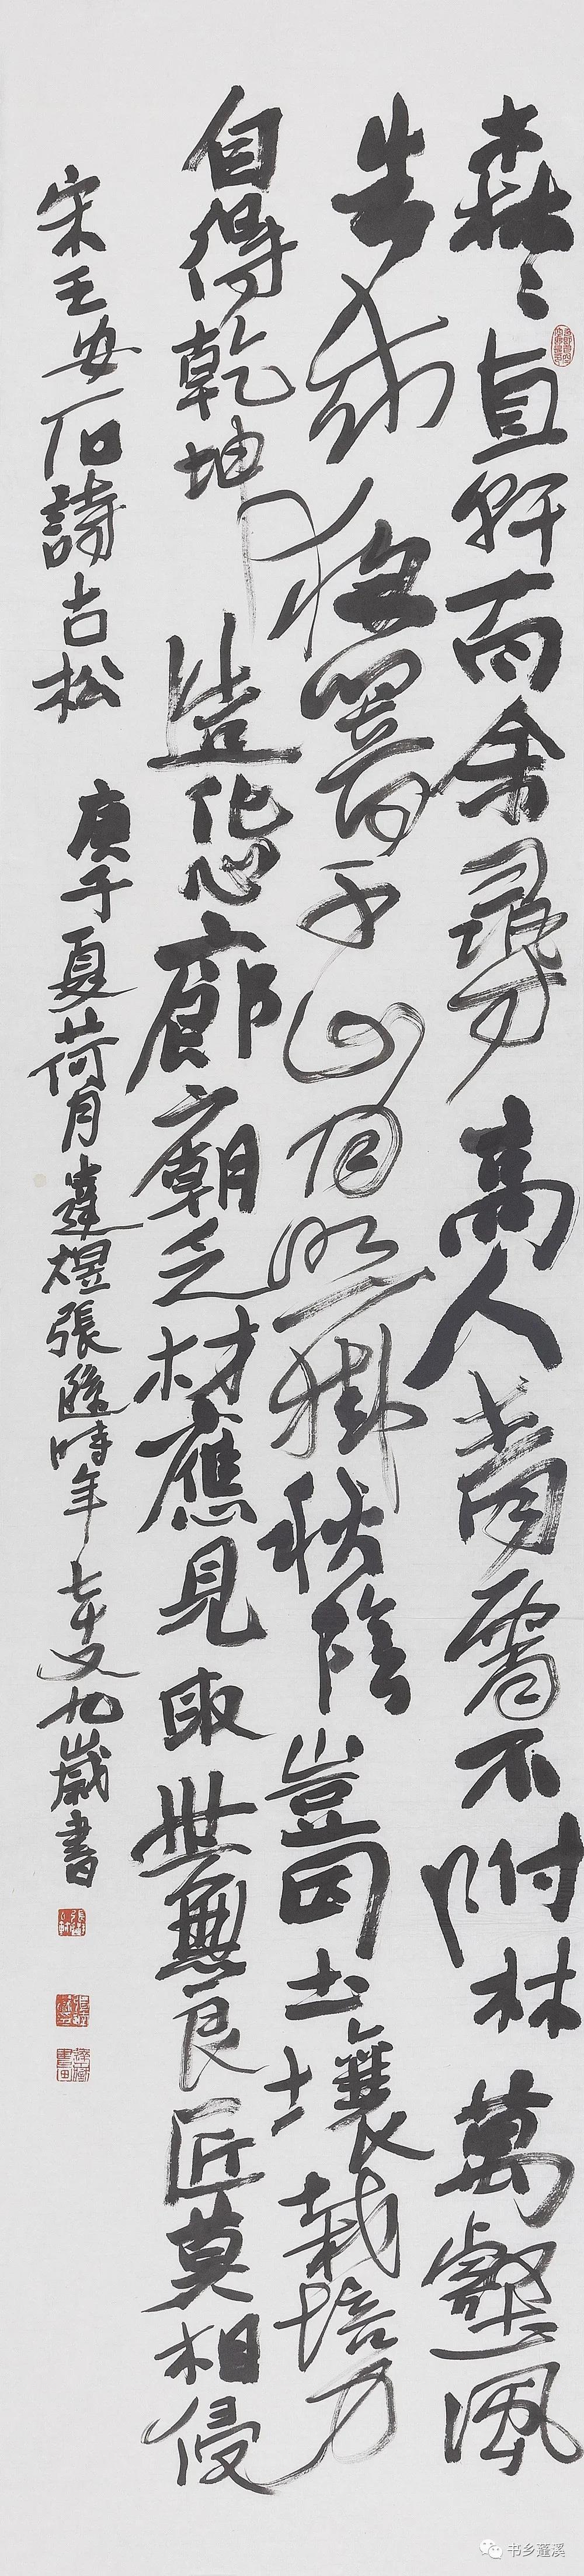 森〻直幹百余尋高入青不附林萬壑風
生成夜響千山月照掛秋陰豈因土壤栽培力
自得乾坤造化心廊廟乏材應見取世無良匠莫相侵
宋王安石詩古松 庚子夏荷月達煜張時年七十又九歲書
书乡蓬溪